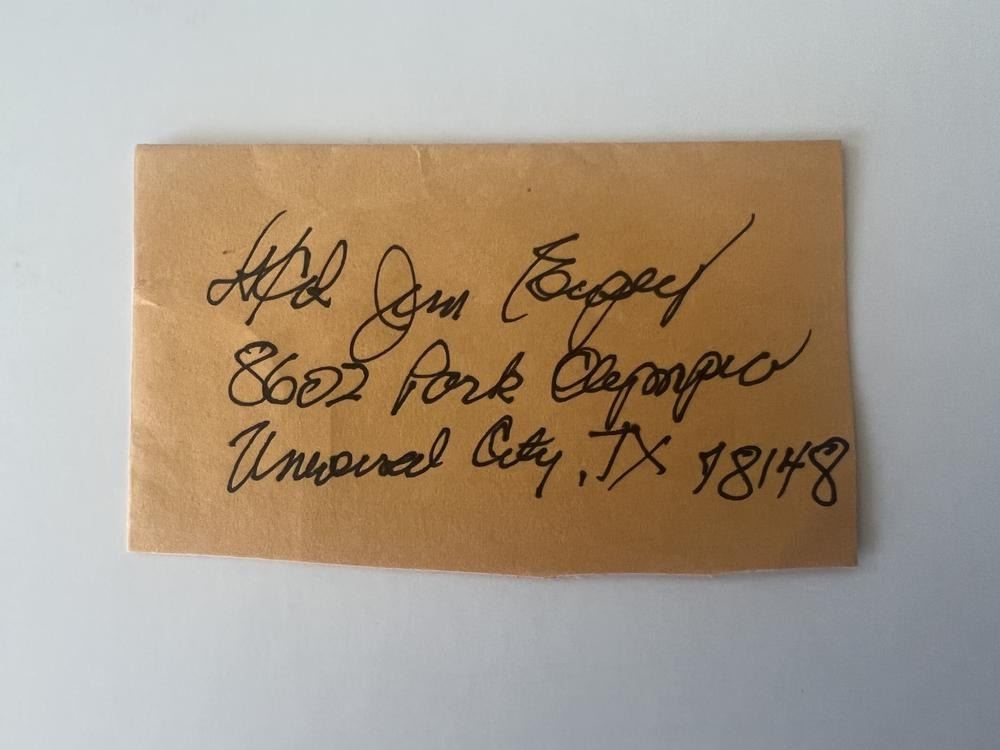 LtCol Jim
8602 Park Olympia
Universal City, TX 78148